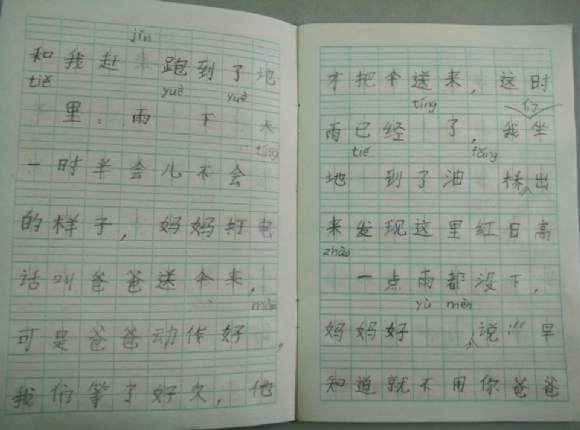 jǐn
和我赶 跑到了地
tiě yuè yuè
里。雨 下 大
tíng
一时半会儿不会
的样子，妈妈打电
话叫爸爸送伞来，
màn
可是爸爸动作好 ，
我们等了好久，他
才把伞送来，这时
tíng 们
雨已经 了，我坐
tiě tōng
地 到了油 桥，出
来发现这里红日高
zhào
一点雨都没下，
yù mèn
妈妈好 ，说："早
知道就不用你爸爸